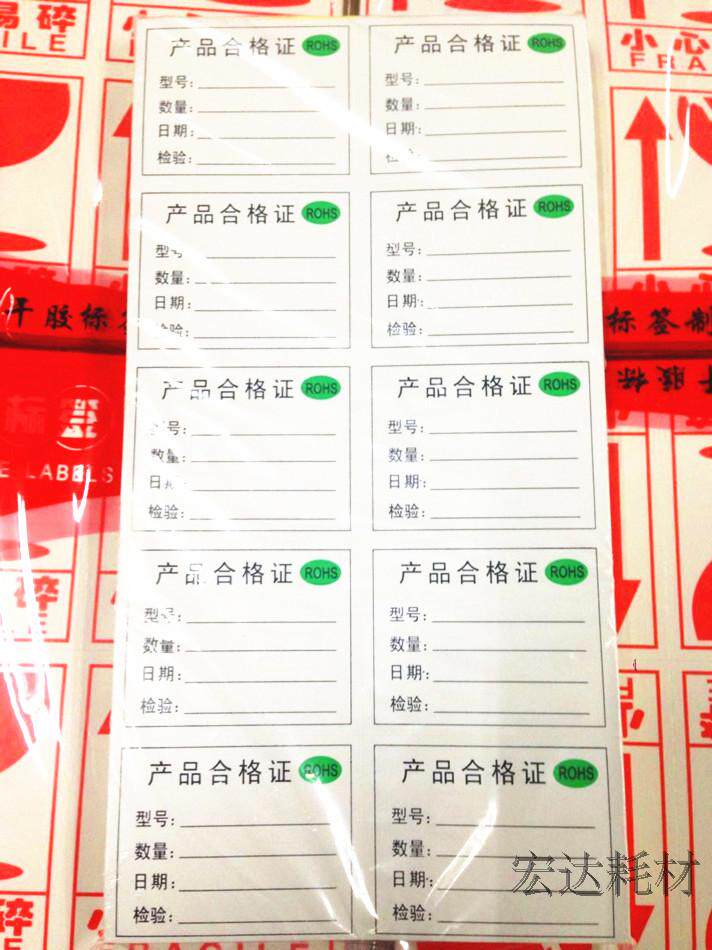 易碎
小心
FRA
产品合格证 ROHS
型号:
数量:
日期:
检验:
产品合格证 ROHS
型号:
数量:
日期:
检验:
产品合格证 ROHS
型号:
数量:
日期:
检验:
产品合格证 ROHS
型号:
数量:
日期:
检验:
产品合格证 ROHS
型号:
数量:
日期:
检验:
产品合格证 ROHS
型号:
数量:
日期:
检验:
产品合格证 ROHS
型号:
数量:
日期:
检验:
产品合格证 ROHS
型号:
数量:
日期:
检验:
产品合格证 ROHS
型号:
数量:
日期:
检验:
产品合格证 ROHS
型号:
数量:
日期:
检验:
干胶标签
标签制
干胶标
LABELS
FRAGILE
宏达耗材